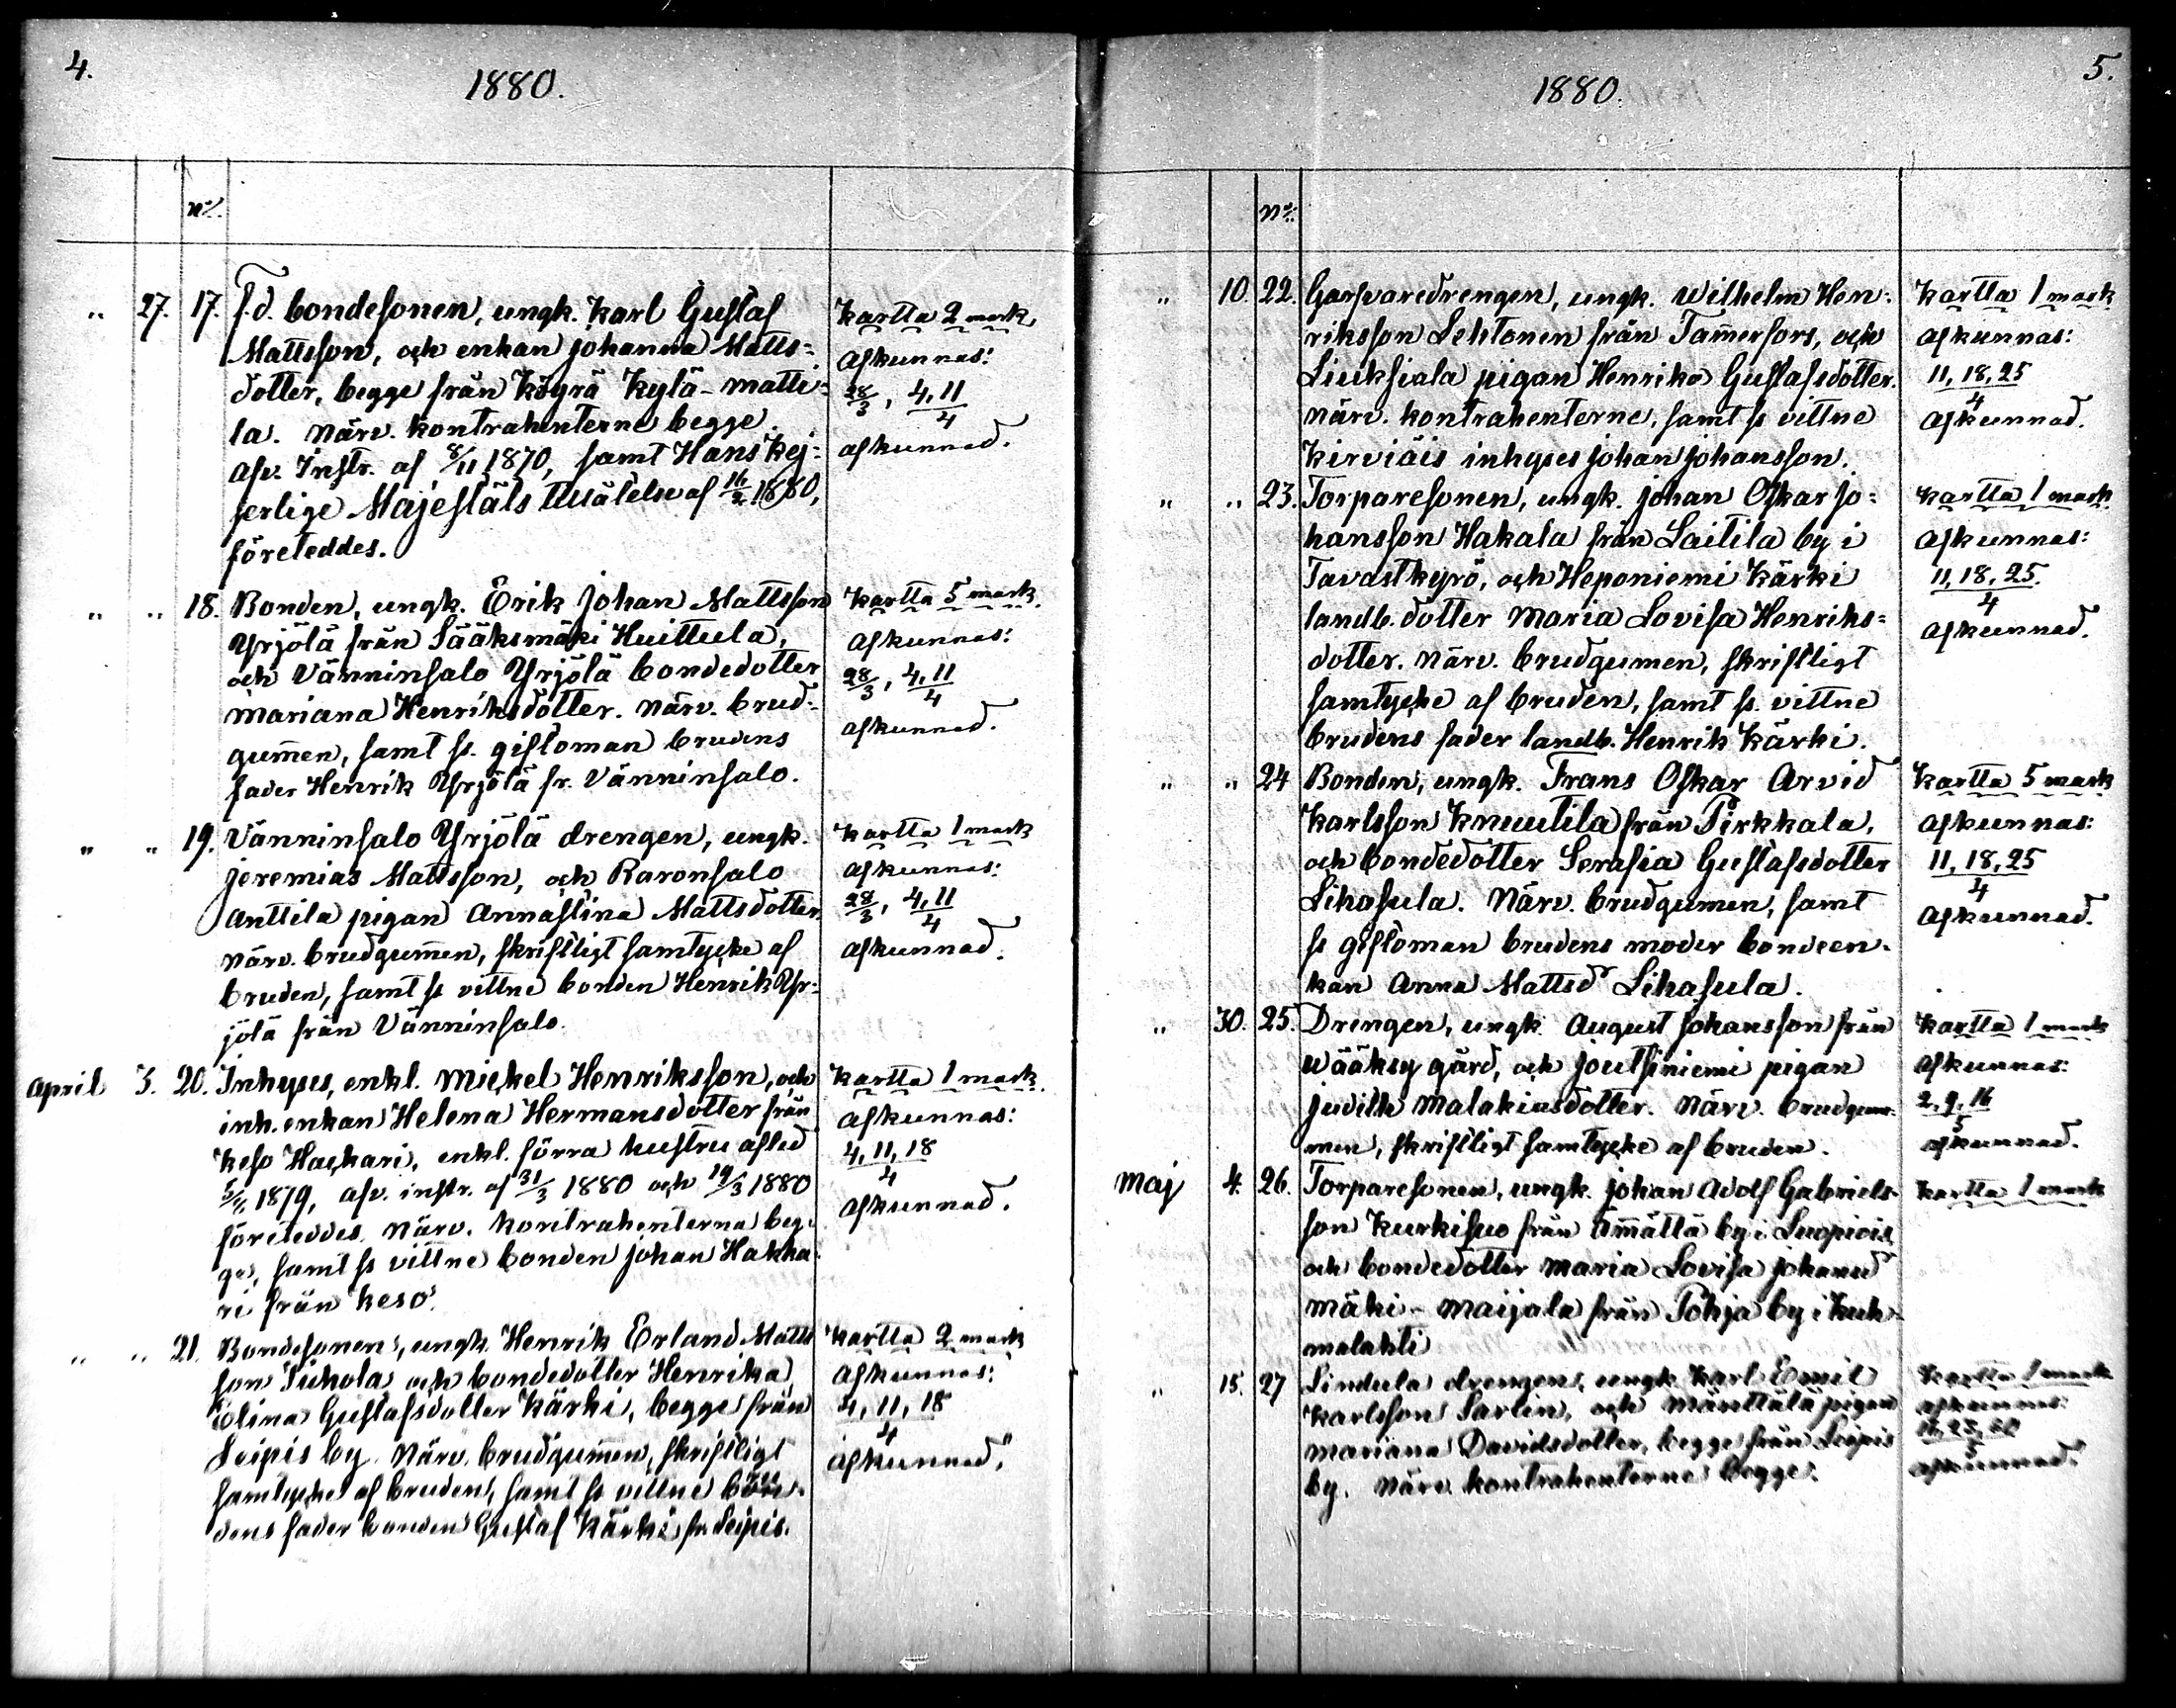 4.
1880.
No.
" 27. 17. F.d. bondesonen, ungk. Karl Gustaf
Mattsson, och enkan Johanna Matts=
dotter, begge från Köyrä Kylä-Matti=
la. Närv. kontrahenterne begge.
Afv. Instr. af 8/11 1870, samt Hans Kej=
serlige Majestäts tillåtelse af 16/2 1880,
företeddes.
Kartta 2 mark
Afkunnas:
28/3, 4,11/4
afkunnad.
" " 18. Bonden, ungk. Erik Johan Mattsson
Yrjölä från Sääksmäki Huittula,
och Vänninsalo Yrjölä bondedotter
Mariana Henriksdotter. Närv. brud=
gummen, samt ss. giftoman brudens
fader Henrik Yrjölä fr. Vänninsalo.
Kartta 5 mark
Afkunnas:
28/3, 4,11/4
afkunnad.
" " 19. Vänninsalo Yrjölä drengen, ungk.
Jeremias Mattsson, och Raronsalo
Anttila pigan Annastina Mattsdotter.
Närv. brudgummen, skriftligt samtycke af
bruden, samt ss vittne bonden Henrik Yr=
jölä från Vänninsalo.
Kartta 1 mark
afkunnas:
28/3, 4,11/4
afkunnad.
April 3. 20. Inhyses, enkl. Mickel Henriksson, och
inh. enkan Helena Hermansdotter från
Keso Hackari, enkl. förra hustru afled
1879, afv. instr. af 31/3 1880 och 19/3 1880
företeddes. Närv. kontrahenterna beg=
ge, samt ss vittne bonden Johan Hakka=
ri från Keso.
Kartta 1 mark
afkunnas:
4, 11, 18/4
afkunnad.
" " 21. Bondesonen, ungk. Henrik Erland Matts
son Tuhola och bondedotter Henrika
Elina Gustafsdotter Kärki, begge från
Leipis by. Närv. brudgummen, skriftligt
samtycke af bruden, samt ss vittne bru=
dens fader bonden Gustaf Kärki fr. Leipis.
Kartta 2 mark
Afkunnas:
4, 11, 18/4
afkunnad.
5.
1880.
No.
" 10. 22. Garfvaredrengen, ungk. Wilhelm Hen=
riksson Lehtonen från Tammerfors, och
Liuksiala pigan Henrika Gustafsdotter.
Närv. kontrahenterne, samt ss vittne
Kirviäis inhyses Johan Johansson.
Kartta 1 mark
Afkunnas:
11, 18, 25/4
Afkunnad.
" " 23. Torparesonen, ungk. Johan Oskar Jo=
hansson Hakala från Laitila by i
Tavastkyrö, och Heponiemi Kärki
landb. dotter Maria Lovisa Henriks=
dotter. Närv. brudgumen, skriftligt
samtycke af bruden, samt ss. vittne
brudens fader landb. Henrik Kärki.
Kartta 1 mark
Afkunnas:
11, 18, 25./4
Afkunnad.
" " 24 Bonden, ungk. Frans Oskar Arvid
Karlsson Knuutila från Pirkkala,
och bondedotter Serafia Gustafsdotter
Lihasula. Närv. brudgumen, samt
ss giftoman brudens moder bondeen=
kan Anna Mattsd Lihasula.
Kartta 5 mark
Afkunnas:
11, 18, 25/4
Afkunnad.
" 30. 25. Drengen, ungk. August Johansson från
Wääksy gård, och Joutsiniemi pigan
Judith Malakiasdotter. Närv. brudgum=
men, skriftligt samtycke af bruden.
Kartta 1 mark
Afkunnas:
2, 9, 16/5
afkunnad.
Maj 4. 26. Torparesonen, ungk. Johan Adolf Gabriels=
son Kurkisuo från Ämmättä by i Luopiois
och bondedotter Maria Lovisa Johansd
Mäki-Maijala från Pohja by i Kuh=
malahti
Kartta 1 mark
" 15. 27 Sindula drengen, ungk. Karl Emil
Karlsson Sarlin, och Mänttälä pigan
Mariana Davidsdotter, begge från Leipis
by. Närv. kontrahenterne begge.
Kartta 1 mark
afkunnas:
afkunnad.